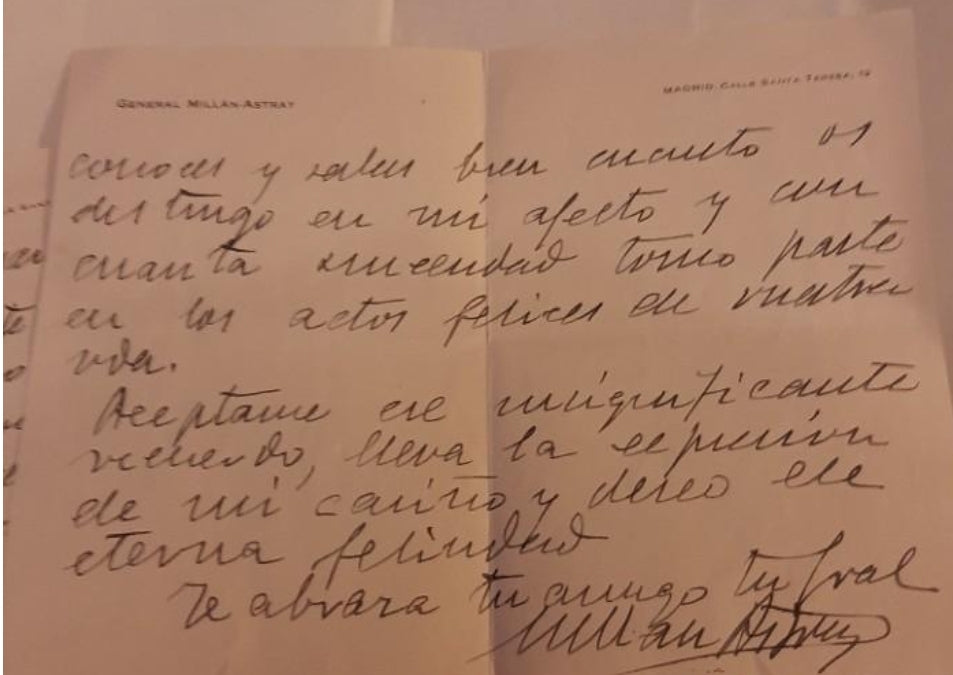 GENERAL MILLÁN-ASTRAY
MADRID. CALLE SANTA TERESA,
conoces y sabes bien cuanto os
distingo en mi afecto y con
cuanta sinceridad tomo parte
en los actos felices de vuestra
vida.
Aceptame ese insignificante
recuerdo, lleva la expresión
de mi cariño y deseo de
eterna felicidad
Te abraza tu amigo tu Gral
Millan Astray